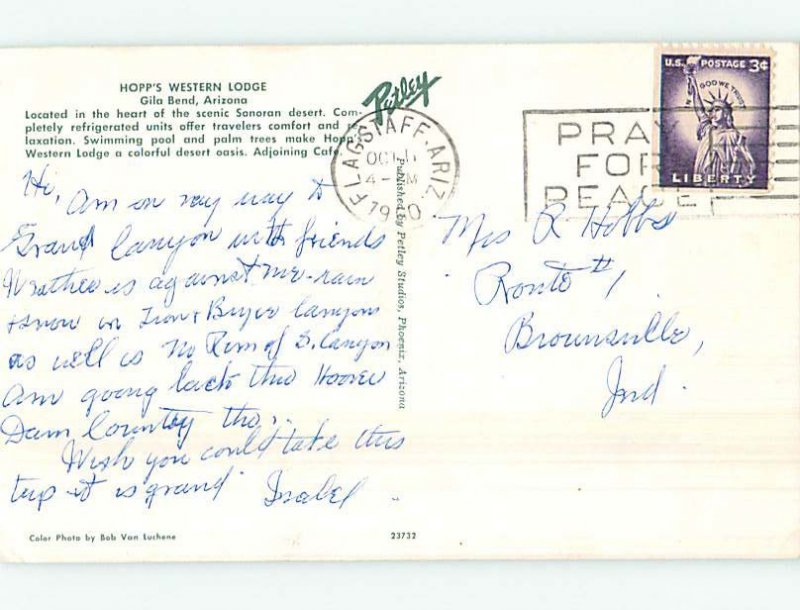 HOPP'S WESTERN LODGE
Gila Bend, Arizona
Located in the heart of the scenic Sonoran desert. Com-
pletely refrigerated units offer travelers comfort and
laxation. Swimming pool and palm trees make Hopp's
Western Lodge a colorful desert oasis. Adjoining Cafe
Petley
FLAGSTAFF, ARIZ.
OCT
4 - M
19 0
PRAY
FOR
PEACE
U.S. POSTAGE 3¢
IN GOD WE TRUST
LIBERTY
Hi,
Am on my way to
Grand Canyon with friends
Weather is against me - rain
+ snow in Zion + Bryce Canyons
as well is No Rim of G. Canyon
Am going back thru Hoover
Dam Country tho.
Wish you could take this
trip it is grand. Isabel
Published by Petley Studios, Phoenix, Arizona
Mrs R Hobbs
Route #1
Brownsville,
Ind.
Color Photo by Bob Van Luchene
23732